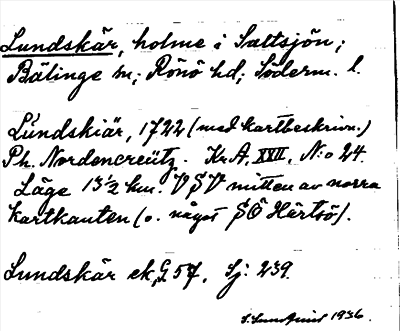 Lundskär, holme i Saltsjön;
Bälinge sn; Rönö hd; Söderm. l.
Lündskiär, 1722 (med kartbeskrivn.)
Ph. Nordencreütz. Kr. A. XVII, N:o 24.
Läge 13½ km. VSV mitten av norra
kartkanten (o. något SÖ Härtsö).
Lundskär ek, G 57, Sj: 239.
1936.